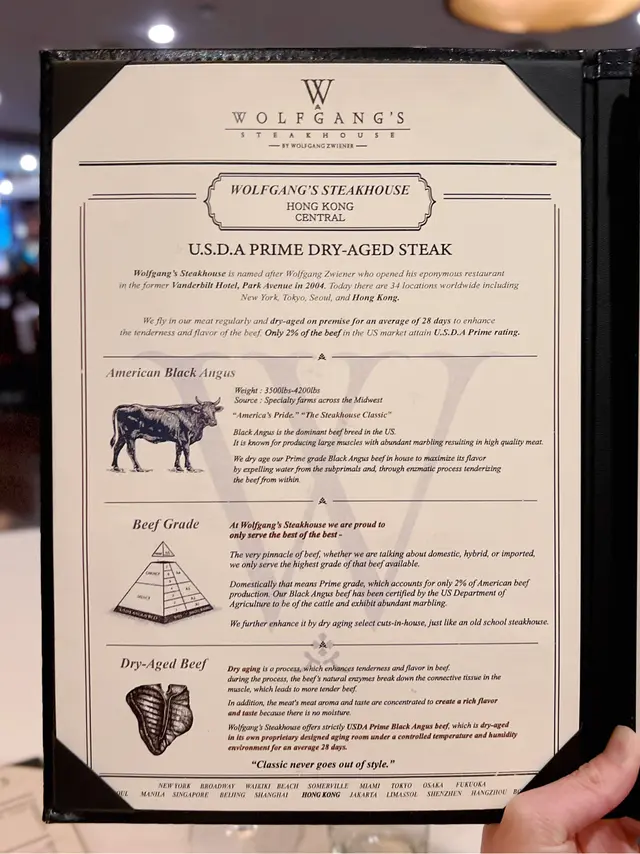 W
WOLFGANG'S
STEAKHOUSE
BY WOLFGANG ZWIENER
WOLFGANG'S STEAKHOUSE
HONG KONG
CENTRAL
U.S.D.A PRIME DRY-AGED STEAK
Wolfgang's Steakhouse is named after Wolfgang Zwiener who opened his eponymous restaurant
in the former Vanderbilt Hotel, Park Avenue in 2004. Today there are 34 locations worldwide including
New York, Tokyo, Seoul, and Hong Kong.
We fly in our meat regularly and dry-aged on premise for an average of 28 days to enhance
the tenderness and flavor of the beef. Only 2% of the beef in the US market attain U.S.D.A Prime rating.
American Black Angus
Weight : 3500lbs-4200lbs
Source : Specialty farms across the Midwest
"America's Pride." "The Steakhouse Classic"
Black Angus is the dominant beef breed in the US.
It is known for producing large muscles with abundant marbling resulting in high quality meat.
We dry age our Prime grade Black Angus beef in house to maximize its flavor
by expelling water from the subprimals and, through enzmatic process tenderizing
the beef from within.
Beef Grade
At Wolfgang's Steakhouse we are proud to
only serve the best of the best -
The very pinnacle of beef, whether we are talking about domestic, hybrid, or imported,
we only serve the highest grade of that beef available.
Domestically that means Prime grade, which accounts for only 2% of American beef
production. Our Black Angus beef has been certified by the US Department of
Agriculture to be of the cattle and exhibit abundant marbling.
We further enhance it by dry aging select cuts-in-house, just like an old school steakhouse.
Dry-Aged Beef
Dry aging is a process, which enhances tenderness and flavor in beef.
during the process, the beef's natural enzymes break down the connective tissue in the
muscle, which leads to more tender beef.
In addition, the meat's meat aroma and taste are concentrated to create a rich flavor
and taste because there is no moisture.
Wolfgang's Steakhouse offers strictly USDA Prime Black Angus beef, which is dry-aged
in its own proprietary designed aging room under a controlled temperature and humidity
environment for an average 28 days.
"Classic never goes out of style."
NEW YORK BROADWAY WAIKIKI BEACH SOMERVILLE MIAMI TOKYO OSAKA FUKUOKA
MANILA SINGAPORE BEIJING SHANGHAI HONG KONG JAKARTA LIMASSOL SHENZHEN HANGZHOU